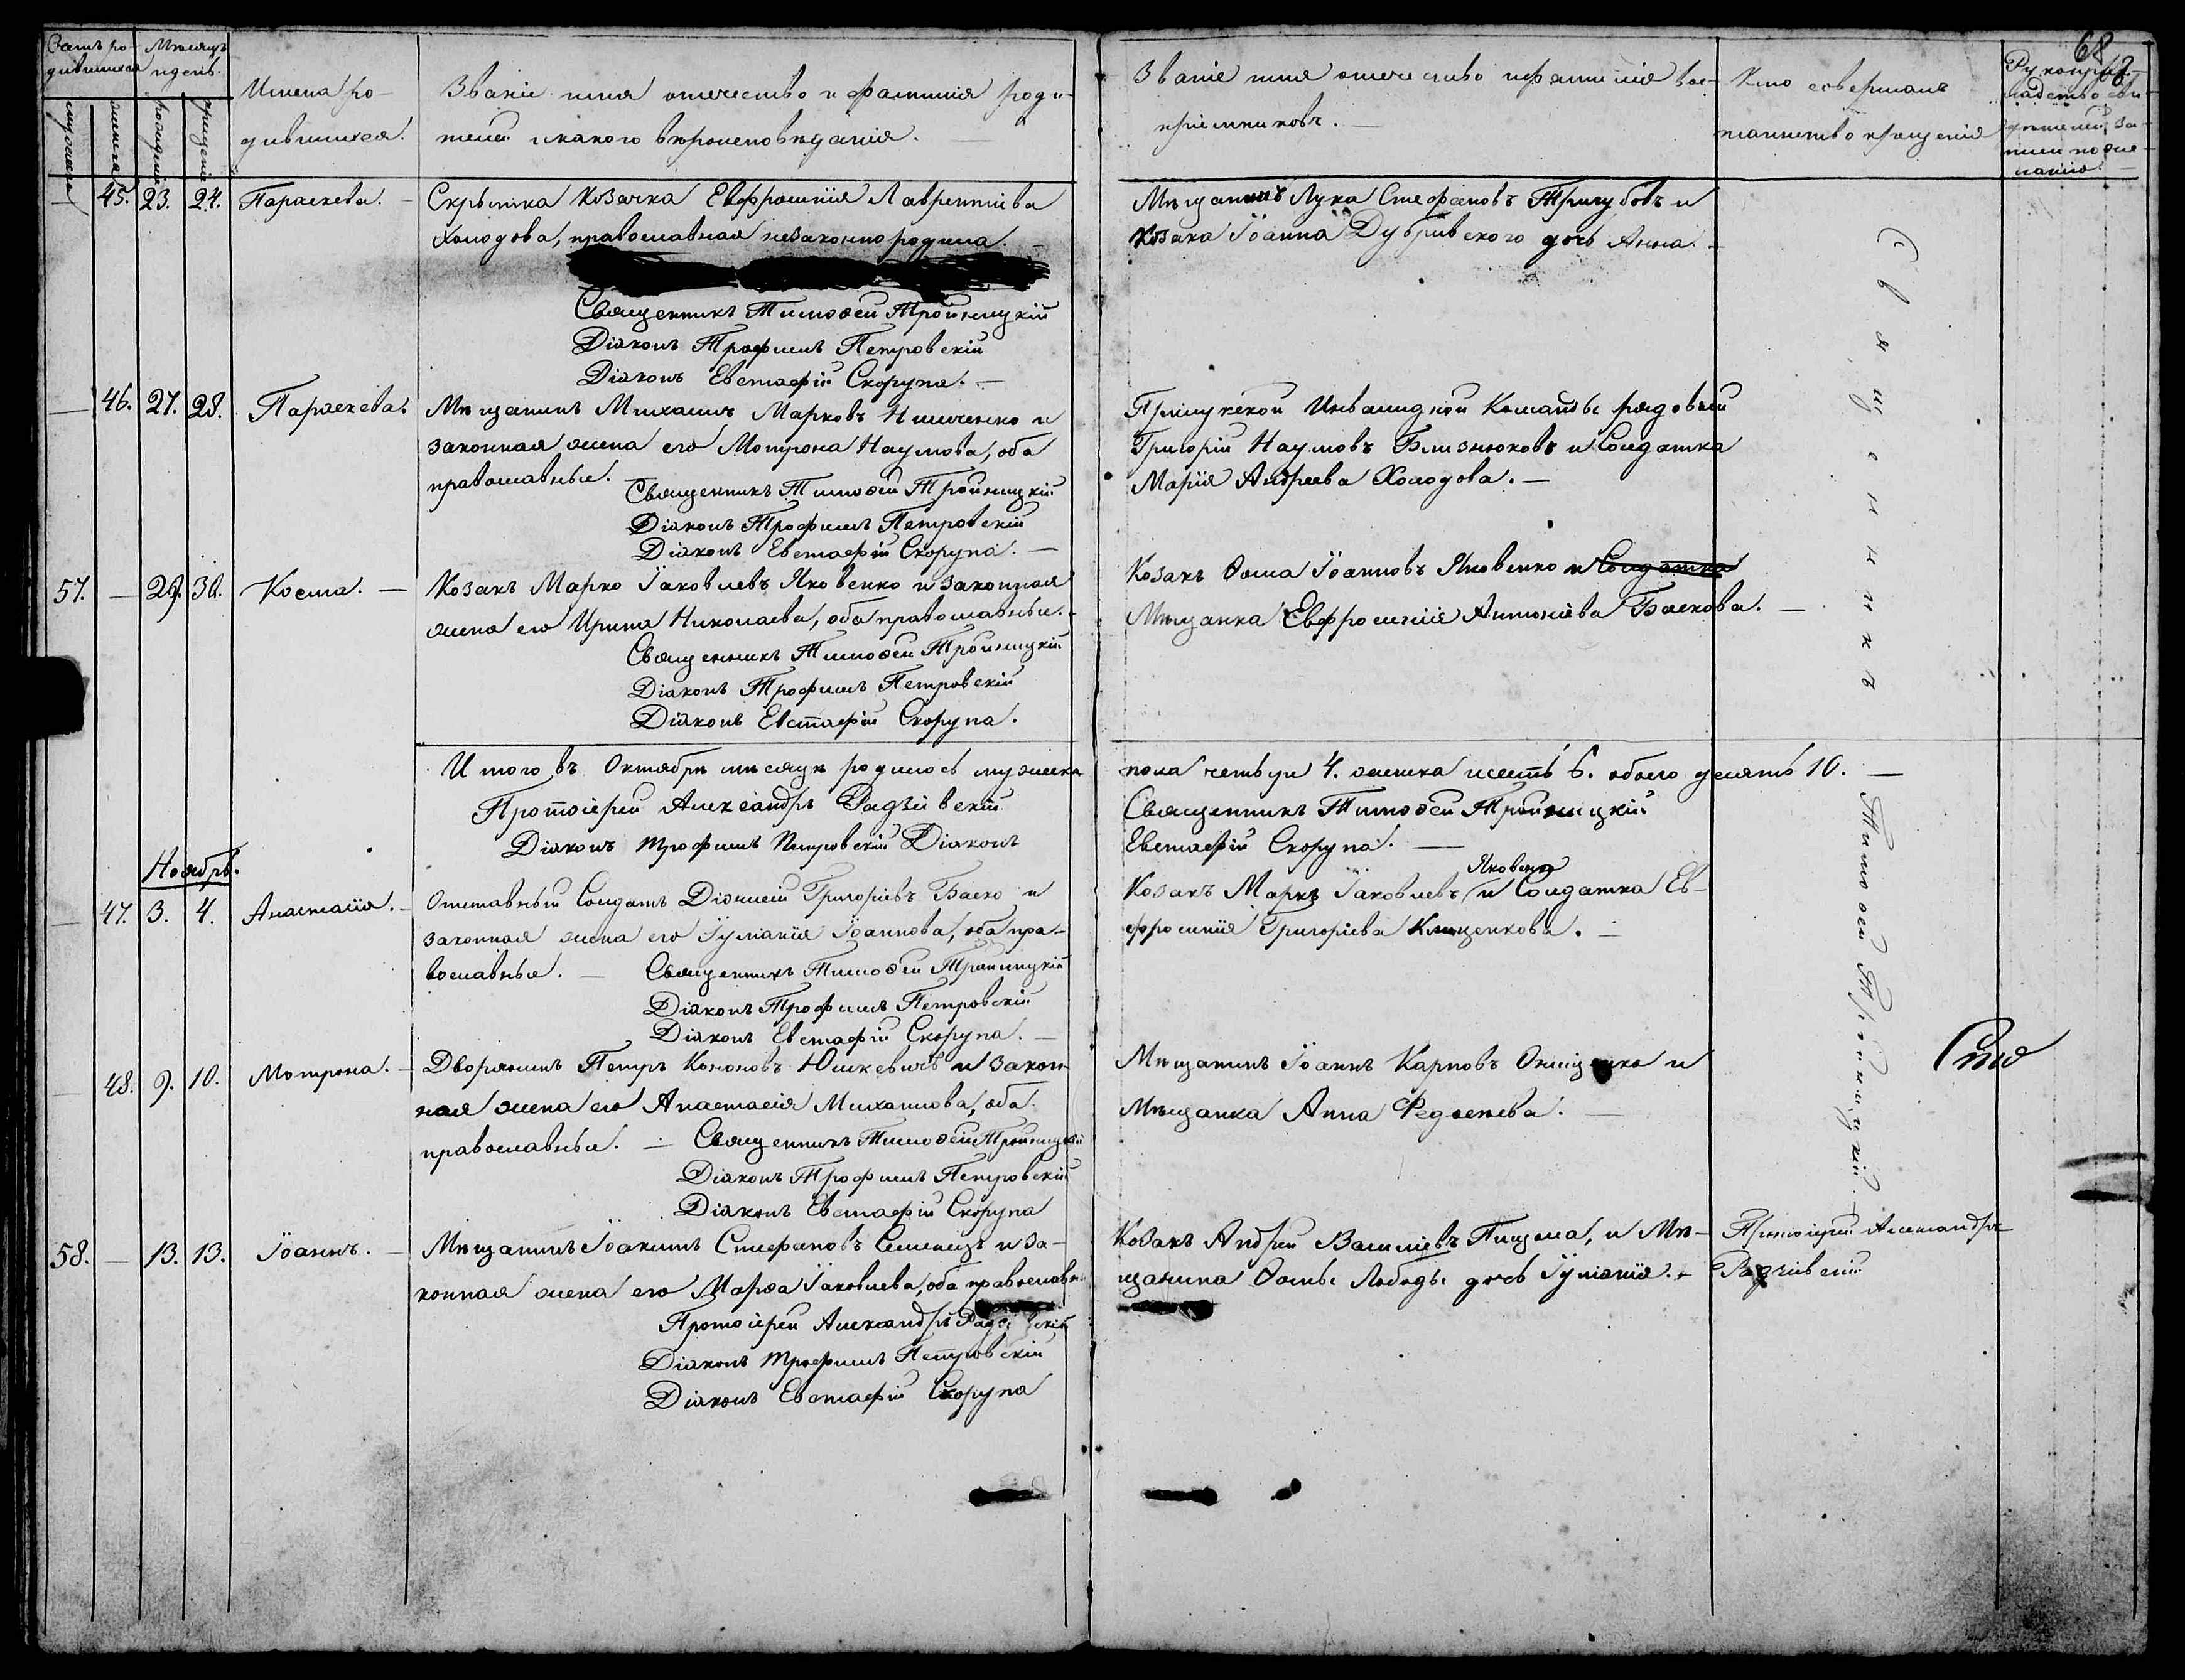 68
Счетъ ро-
дившихся
Мѣсяцъ
и день.
мужеска
женска
рожденія
крещенія
Имена ро-
дившихся.
Званіе имя отечество и фамилія роди-
телей и какого вѣроисповѣданія. —
Званіе имя отечество и фамилія вос-
пріемниковъ. —
Кто совершалъ
таинство крещенія
Рукоприк-
ладство сви-
дѣтелей за-
писи по же-
ланію. —
— 45. 23. 24. Параскева. —
Скрытка Козачка Евфросинія Лаврентіева
Холодова, православная незаконно родила. —
Священникъ Тимоѳей Тройницкій
Діаконъ Трофимъ Петровскій
Діаконъ Евстафій Скорупа. —
Мѣщанинъ Лука Стефановъ Тригубовъ и
Козака Іоанна Дубривского дочь Анна. —
— 46. 27. 28. Параскева.
Мѣщанинъ Михаилъ Марковъ Ничченко и
законная жена его Мотрона Наумова, оба
православные.
Священникъ Тимоѳей Тройницкій
Діаконъ Трофимъ Петровскій
Діаконъ Евстафій Скорупа. —
Прилукской Инвалидной Команды рядовый
Григорій Наумовъ Близнюковъ и Солдатка
Марія Андреева Холодова. —
57. — 29. 30. Косма. —
Козакъ Марко Іаковлевъ Яковенко и законная
жена его Ирина Николаева, оба православные. —
Священникъ Тимоѳей Тройницкій
Діаконъ Трофимъ Петровскій
Діаконъ Евстафій Скорупа.
Козакъ Ѳома Іоанновъ Яковенко и Солдатка
Мѣщанка Евфросинія Антоніева Баскова. —
Итого въ Октябрѣ мѣсяцѣ родилось мужеска
пола четыре 4. женска шесть 6. обоего десять 10. —
Протоіерей Александръ Радзіевскій
Священникъ Тимоѳей Тройницкій
Діаконъ Трофимъ Петровскій Діаконъ
Евстафій Скорупа. —
Ноябрь.
— 47. 3. 4. Анастасія. —
Отставный Солдатъ Діонисій Григоріевъ Баско и
законная жена его Іуліанія Іоаннова, оба пра-
вославные. —
Священникъ Тимоѳей Тройницкій
Діаконъ Трофимъ Петровскій
Діаконъ Евстафій Скорупа. —
Яковенко
Козакъ Марко Іаковлевъ и Солдатка Ев-
фросинія Григоріева Клищенкова. —
— 48. 9. 10. Мотрона. —
Дворянинъ Петръ Кононовъ Юшкевичъ и закон-
ная жена его Анастасія Михаилова, оба
православные. —
Священникъ Тимоѳей Тройницкій
Діаконъ Трофимъ Петровскій
Діаконъ Евстафій Скорупа
Мѣщанинъ Іоаннъ Карповъ и
Мѣщанка Анна Федосѣева. —
58. — 13. 13. Іоаннъ. —
Мѣщанинъ Іоакимъ Стефановъ Семенецъ и за-
конная жена его Марѳа Іаковлева, оба православн
Протоіерей Александръ Радзіевскій
Діаконъ Трофимъ Петровскій
Діаконъ Евстафій Скорупа
Козакъ Андрей Василіевъ Пищола, и Мѣ-
щанина Ѳомы Лободы дочь Іуліанія. —
Протоіерей Александръ
Радзіевскій
Священникъ
Тимоѳей Тройницкій.